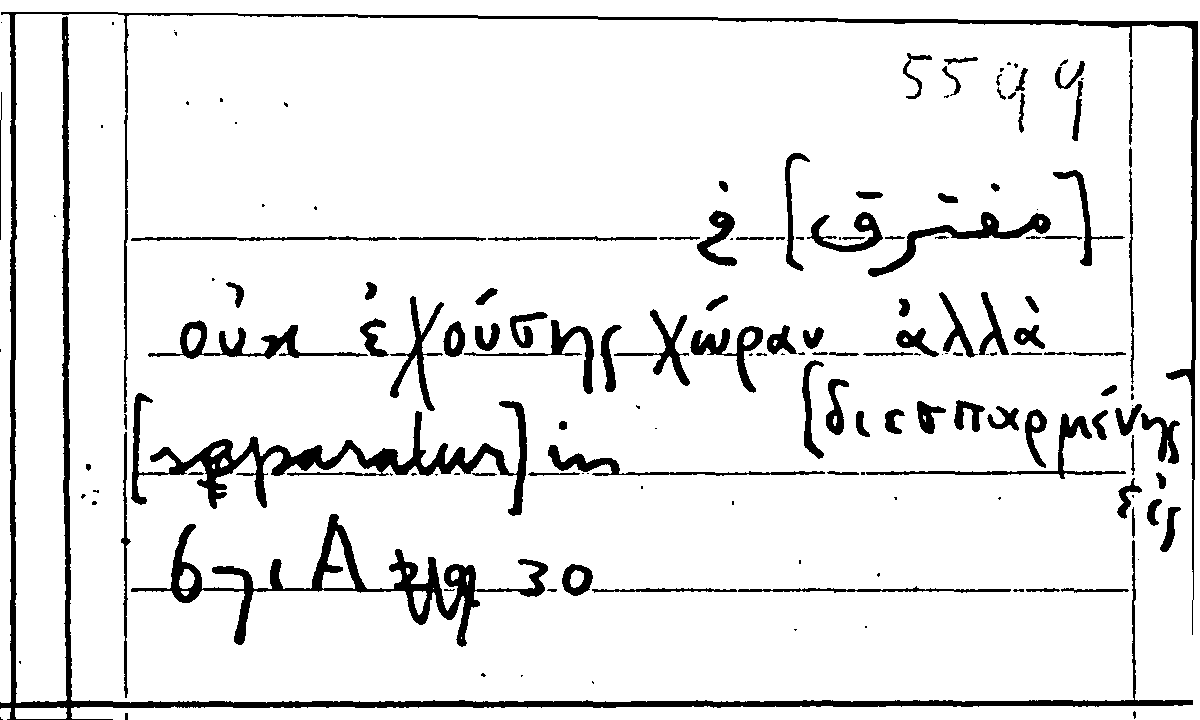 5599
[متفرق] في
οὐκ ἐχούσης χώραν ἀλλὰ
[διεσπαρμένης
εἰς
[separatur] in
671 A 30